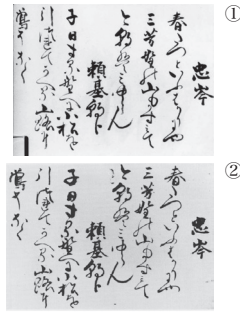 忠岑
春たつといふはかりにや
三芳野の山もかすみて
けさはみゆらん
頼基朝臣
子日する野へに小松を
引つれてかへる山路に
鶯そなく
①
忠岑
春たつといふはかりにや
三芳野の山もかすみて
けさはみゆらん
頼基朝臣
子日する野へに小松を
引つれてかへる山路に
鶯そなく
②